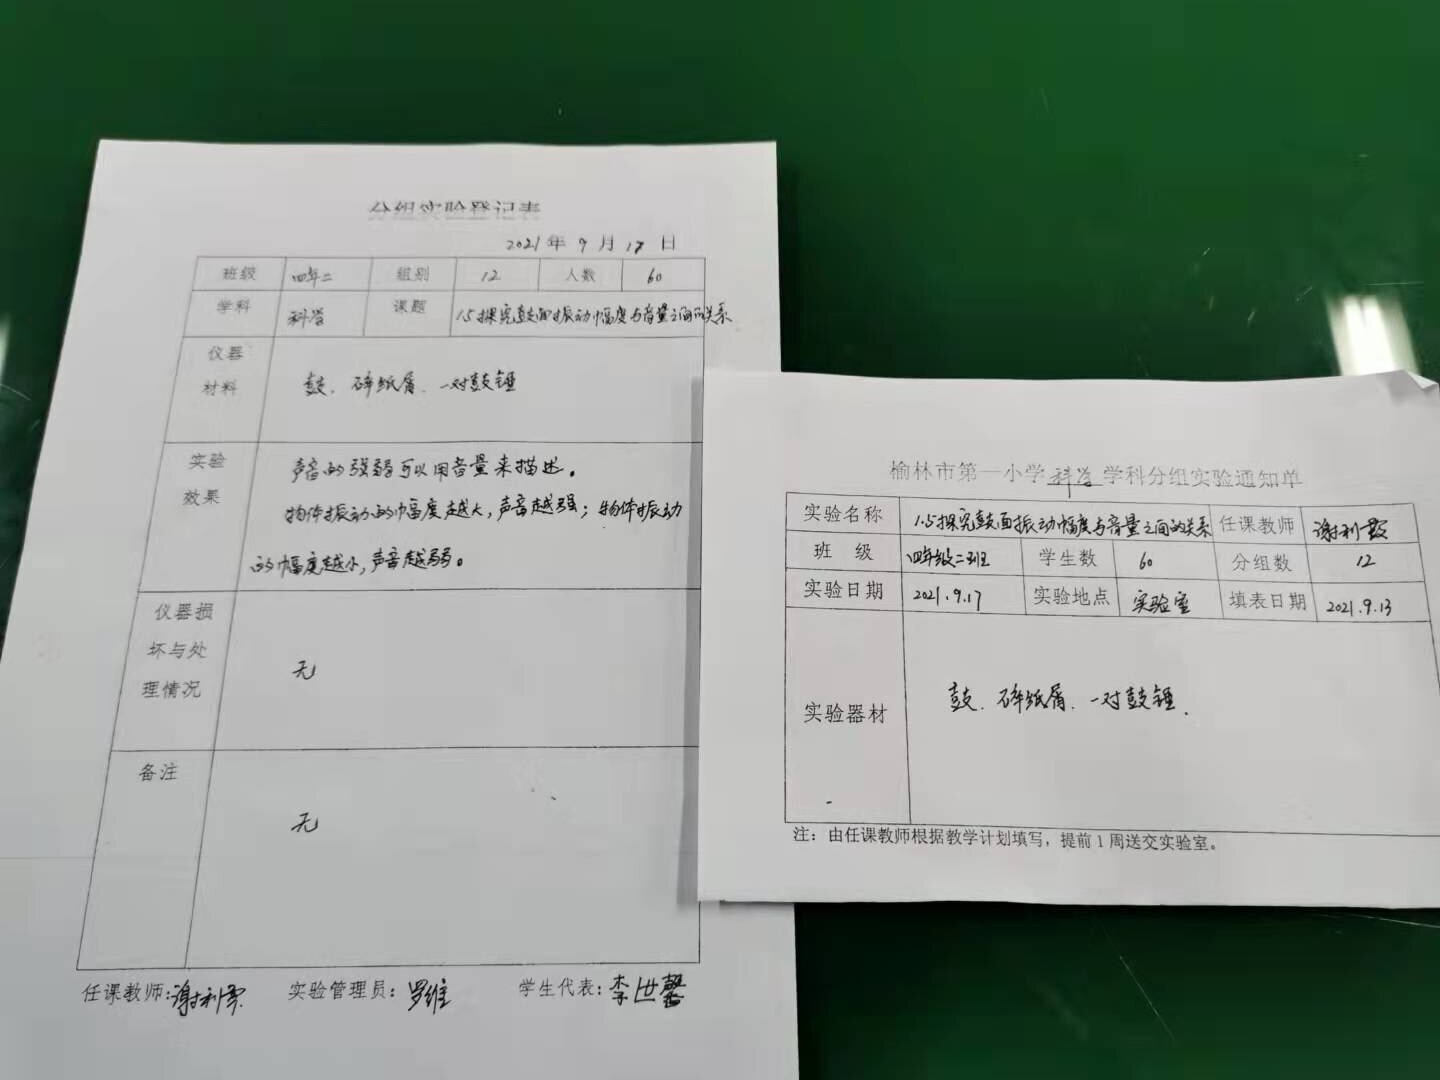 分组实验登记表
2021 年 9 月 17 日
班级 四年二 组别 12 人数 60
学科 科学 课题 1.5探究鼓面振动幅度与音量之间的关系
仪器
材料
鼓、碎纸屑、一对鼓锤
实验
效果
声音的强弱可以用音量来描述。
物体振动的幅度越大,声音越强;物体振动
的幅度越小,声音越弱。
仪器损
坏与处
理情况
无
备注
无
任课教师:谢利 实验管理员:罗维 学生代表:李世馨
榆林市第一小学科学学科分组实验通知单
实验名称 1.5探究鼓面振动幅度与音量之间的关系 任课教师 谢利
班 级 四年级二班 学生数 60 分组数 12
实验日期 2021.9.17 实验地点 实验室 填表日期 2021.9.13
实验器材 鼓、碎纸屑、一对鼓锤.
注:由任课教师根据教学计划填写,提前1周送交实验室。